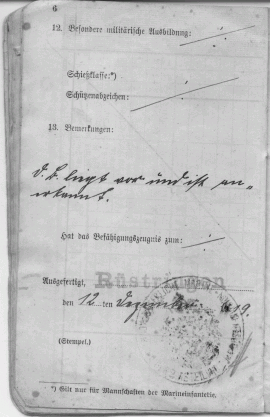 6
12. Besondere militärische Ausbildung:
Schießklasse:*)
Schützenabzeichen:
13. Bemerkungen:
d. B. liegt vor und ist an-
erkannt.
Hat das Befähigungszeugnis zum:
Rüstringen
Ausgefertigt,
den 12 ten Dezember 1919.
(Stempel.)
*) Gilt nur für Mannschaften der Marineinfanterie.